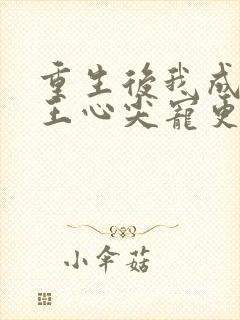 重生後我成
王心尖寵更
小伞菇